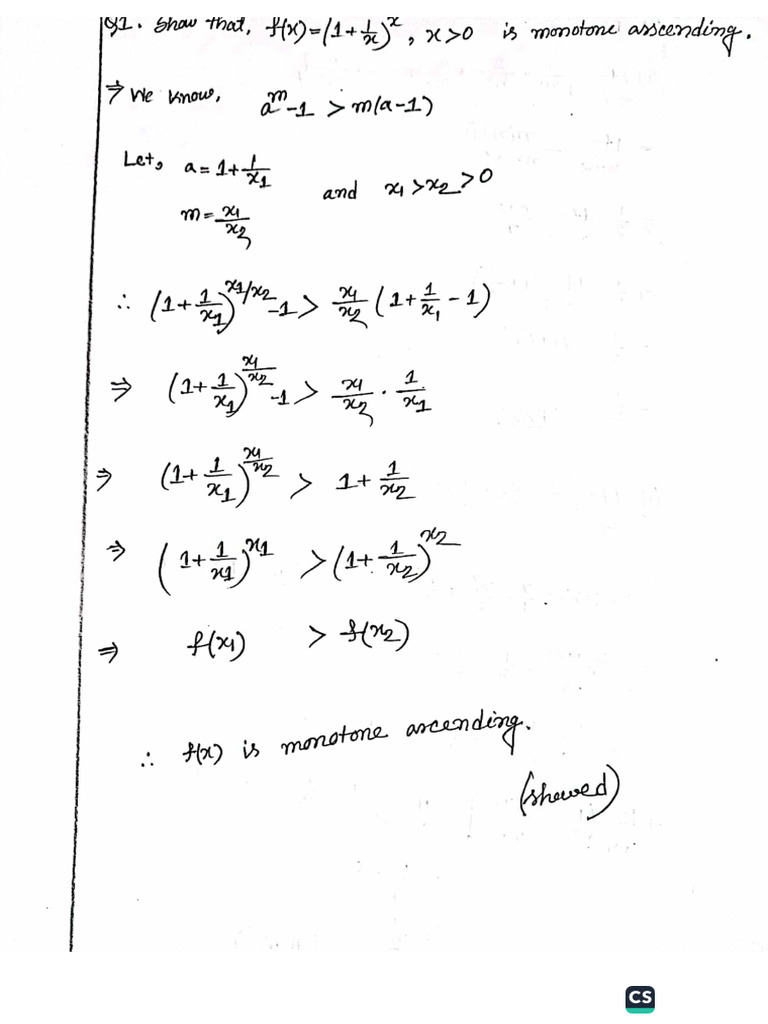 Q1. Show that, f(x)=(1+1/x)^x, x>0 is monotone asscending.
⇒ We know, a^m-1 > m(a-1)
Let, a = 1+1/x₁
and x₁>x₂>0
m = x₁/x₂
∴ (1+1/x₁)^(x₁/x₂) -1 > x₁/x₂ (1+1/x₁ - 1)
⇒ (1+1/x₁)^(x₁/x₂) -1 > x₁/x₂ · 1/x₁
⇒ (1+1/x₁)^(x₁/x₂) > 1+1/x₂
⇒ (1+1/x₁)^x₁ > (1+1/x₂)^x₂
⇒ f(x₁) > f(x₂)
∴ f(x) is monotone ascending.
(showed)
CS